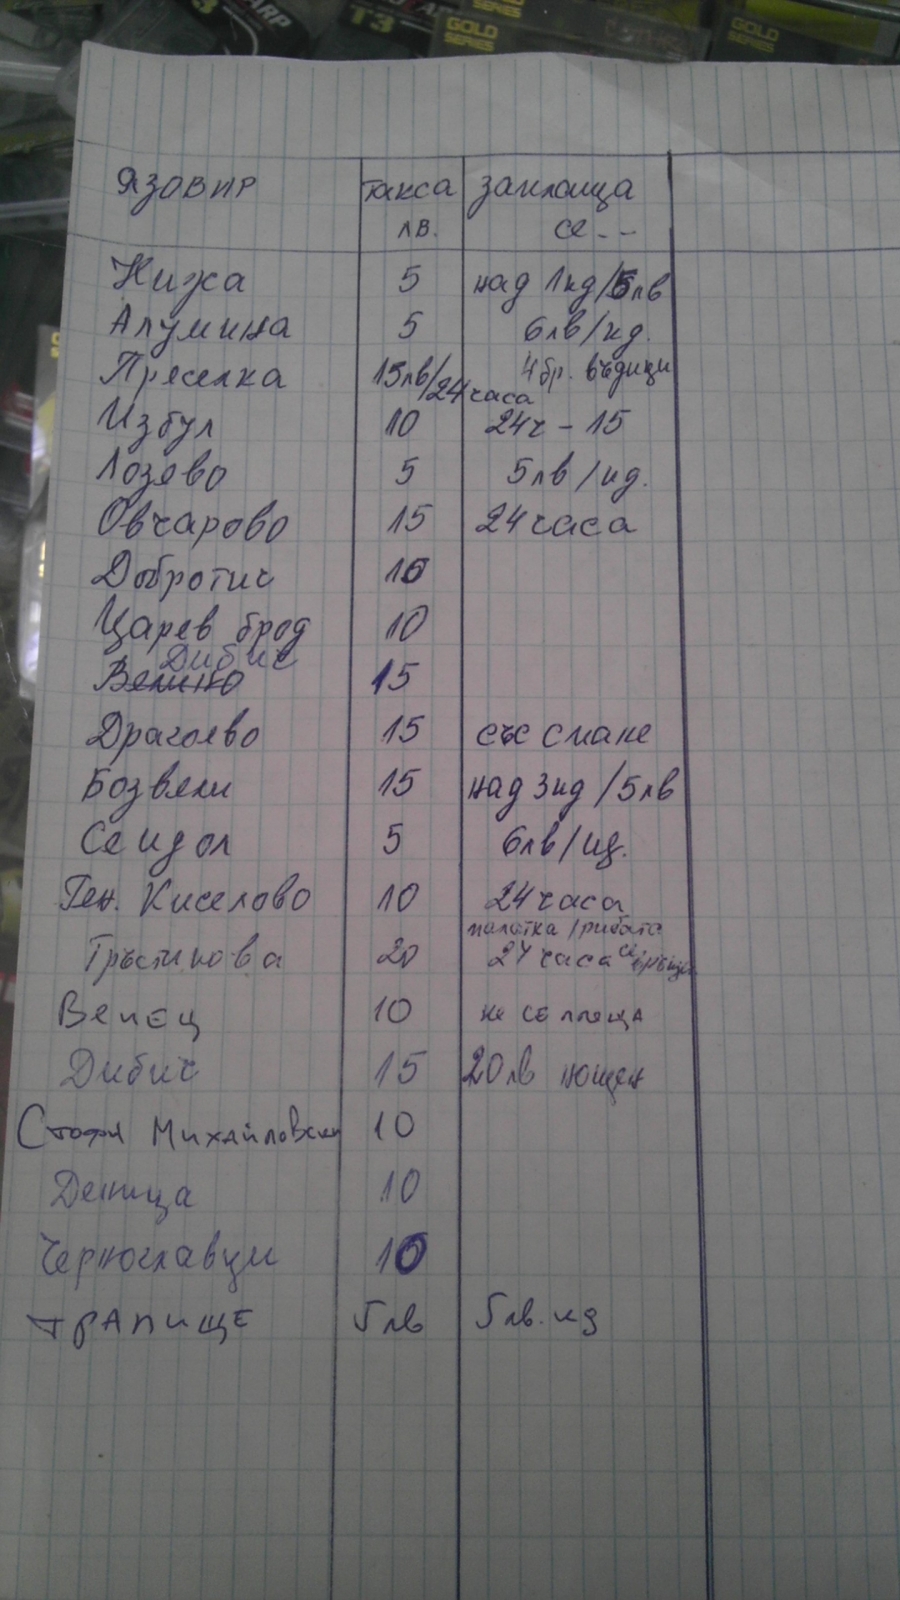 GOLD
SERIES
T3
GOLD
SERIES
ЯЗОВИР такса заплаща
лв. се --
Нижа 5 над 1кг/5лв
Алумина 5 6лв/кг.
Преселка 15лв/24 часа 4бр. въдици
Избул 10 24ч - 15
Лозево 5 5лв/кг.
Овчарово 15 24 часа
Добротич 10
Царев брод 10
Дибич
Велино 15
Драгоево 15 със смане
Бозвели 15 над 3кг/5лв
Сеидол 5 6лв/кг.
Ген. Киселово 10 24 часа
палатка/рибата
Тръстикова 20 24 часа се връща
Венец 10 не се плаща
Дибич 15 20лв нощен
Стоян Михайловски 10
Деница 10
Черноглавци 10
ТРАПИЩЕ 5лв 5лв. кг